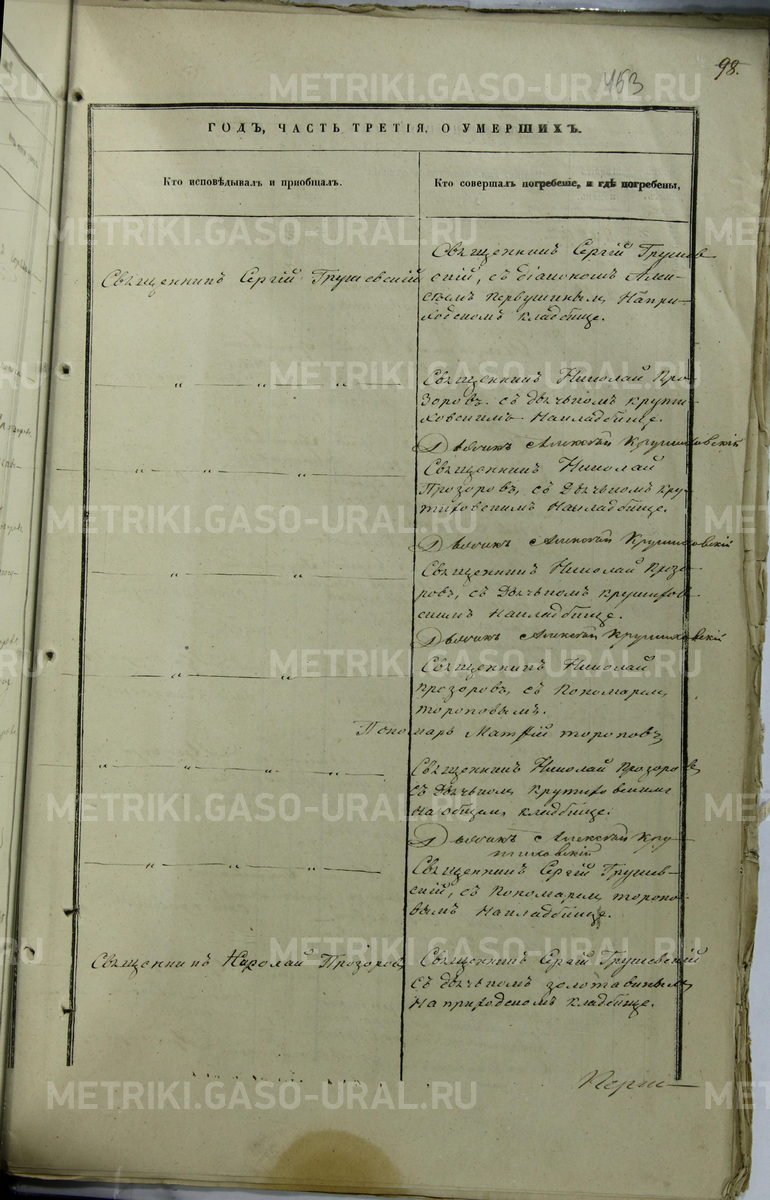 98.
463
ГОДЪ, ЧАСТЬ ТРЕТІЯ, О УМЕРШИХЪ.
Кто исповѣдывалъ и приобщалъ.
Кто совершалъ погребеніе, и гдѣ погребены,
Священникъ Сергій Грушевскій
Священникъ Сергій Грушев-
скій, съ діакономъ Алек-
сѣемъ Первушинымъ, На при-
ходскомъ кладбище.
Священникъ Николай Про-
зоровъ съ дьячкомъ Крути-
ховскимъ На кладбище.
Дьячикъ Алексѣй Крутиховскій
Священникъ Николай
Прозоровъ, съ Дьячкомъ Кру-
тиховскимъ На кладбище.
Дьячикъ Алексѣй Крутиховскій
Священникъ Николай Прозо-
ровъ, съ Дьячкомъ Крутихов-
скимъ На кладбище.
Дьячикъ Алексѣй Крутиховскій
Священникъ Николай
Прозоровъ, съ Пономаремъ
Тороповымъ.
Пономарь Матѳій Тороповъ
Священникъ Николай Прозоровъ
съ дьячкомъ Крутиховскимъ
На общемъ кладбище.
Дьячикъ Алексѣй Кру-
тиховскій
Священникъ Сергій Грушев-
скій, съ Пономаремъ Торопо-
вымъ На кладбище.
Священникъ Николай Прозоровъ
Священникъ Сергій Грушевскій
съ дьячкомъ Золотавинымъ
На приходскомъ кладбище.
METRIKI.GASO-URAL.RU